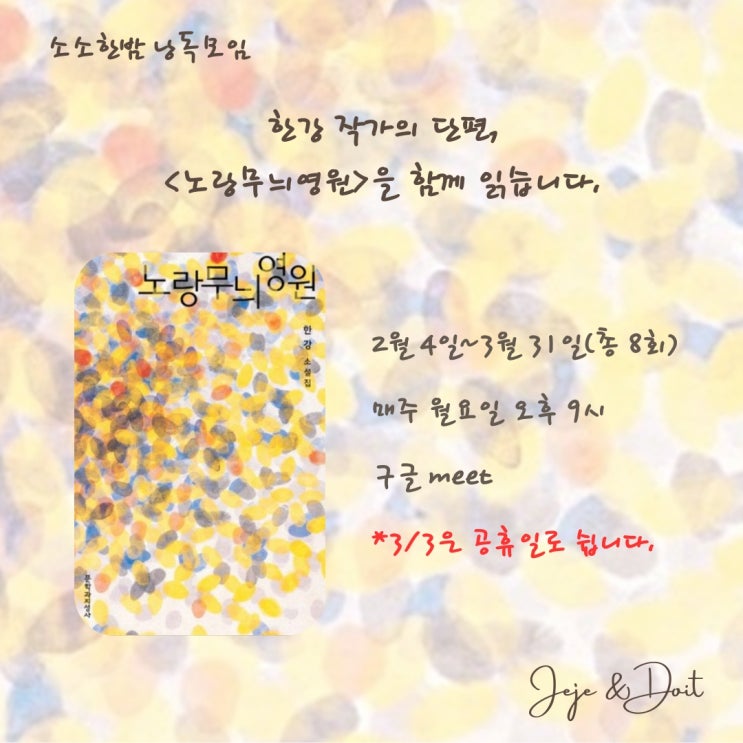 소소한밤 낭독모임
한강 작가의 단편,
<노랑무늬영원>을 함께 읽습니다.
노랑무늬영원
한강 소설집
문학과지성사
2월 4일~3월 31일(총 8회)
매주 월요일 오후 9시
구글 meet
*3/3은 공휴일로 쉽니다.
Jeje & Doit